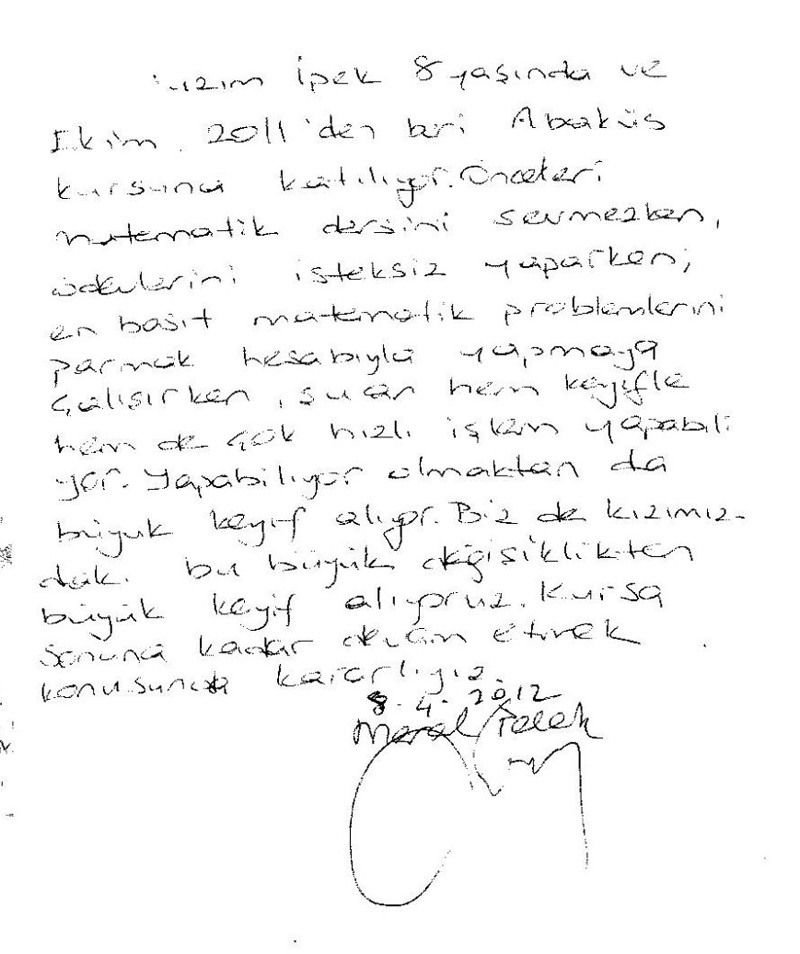 Kızım İpek 8 yaşında ve
Ekim 2011'den beri Abaküs
kursuna katılıyor. Önceleri
matematik dersini sevmezken,
ödevlerini isteksiz yaparken;
en basit matematik problemlerini
parmak hesabıyla yapmaya
çalışırken, şuan hem keyifle
hem de çok hızlı işlem yapabili
yor. Yapabiliyor olmaktan da
büyük keyif alıyor. Biz de kızımız-
daki bu büyük değişiklikten
büyük keyif alıyoruz. Kursa
sonuna kadar devam etmek
konusunda kararlıyız.
8.4.2012
Meral